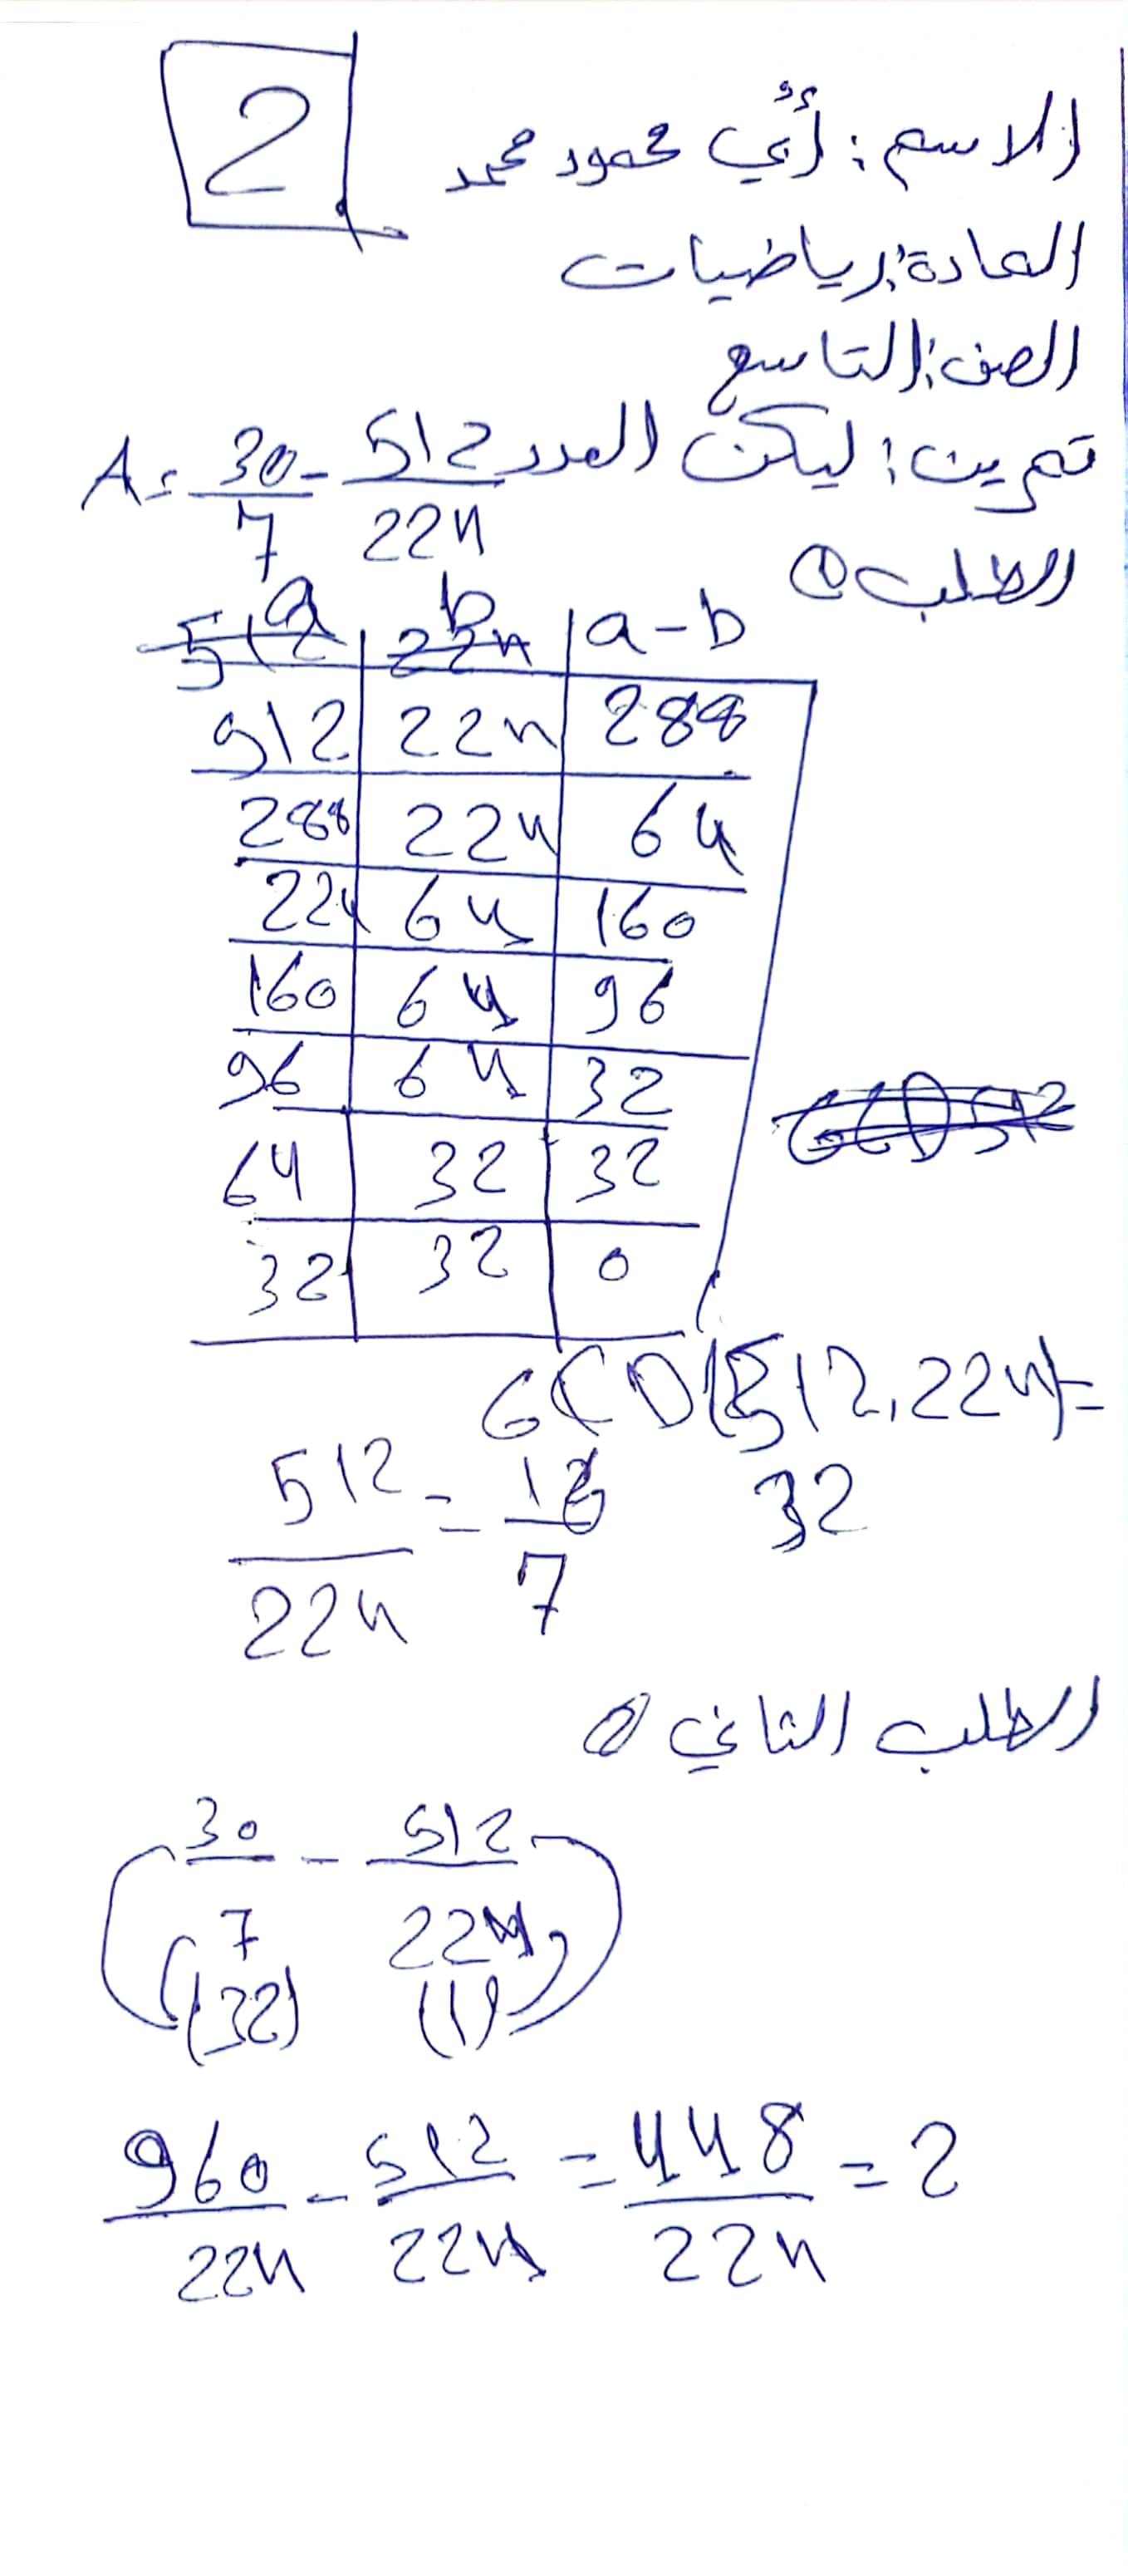 2
الاسم: أُبي محمود محمد
المادة: رياضيات
الصف: التاسع
تمرين: ليكن العدد A = 30/7 - 512/224
الطلب ①
a | b | a-b
512 | 224 | 288
288 | 224 | 64
224 | 64 | 160
160 | 64 | 96
96 | 64 | 32
64 | 32 | 32
32 | 32 | 0
GCD(512,224)=
32
512/224 = 16/7
الطلب الثاني
30/7 - 512/224
(32) (1)
960/224 - 512/224 = 448/224 = 2